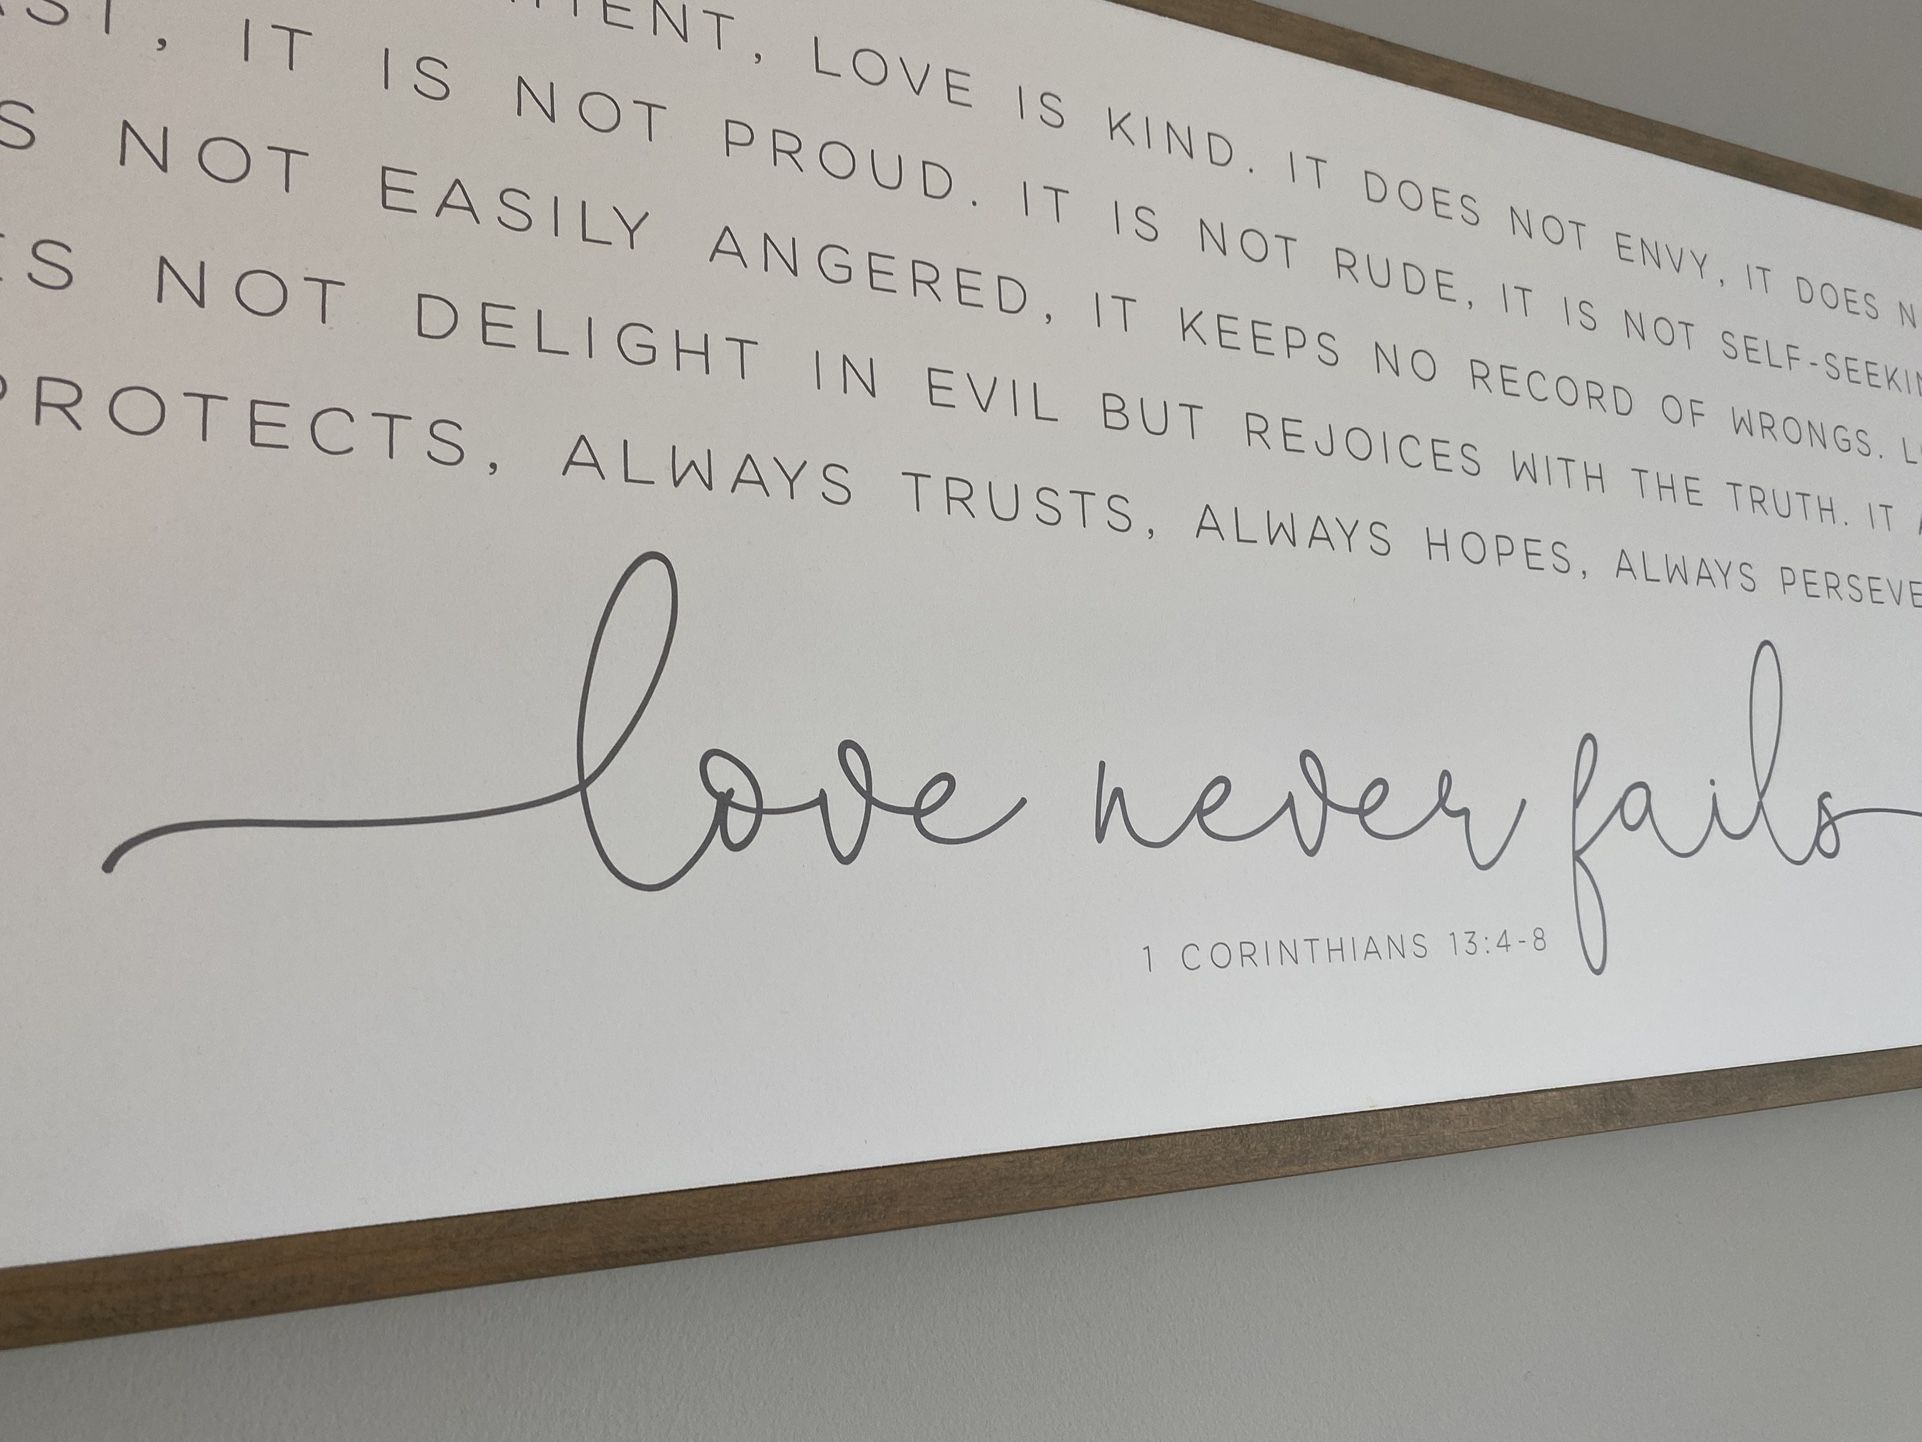 LOVE IS KIND. IT DOES NOT ENVY, IT DOES
IT IS NOT PROUD. IT IS NOT RUDE, IT IS NOT
NOT EASILY ANGERED, IT KEEPS NO RECORD OF WRONGS.
NOT DELIGHT IN EVIL BUT REJOICES WITH THE TRUTH. IT
PROTECTS, ALWAYS TRUSTS, ALWAYS HOPES, ALWAYS
love never fails
1 CORINTHIANS 13:4-8